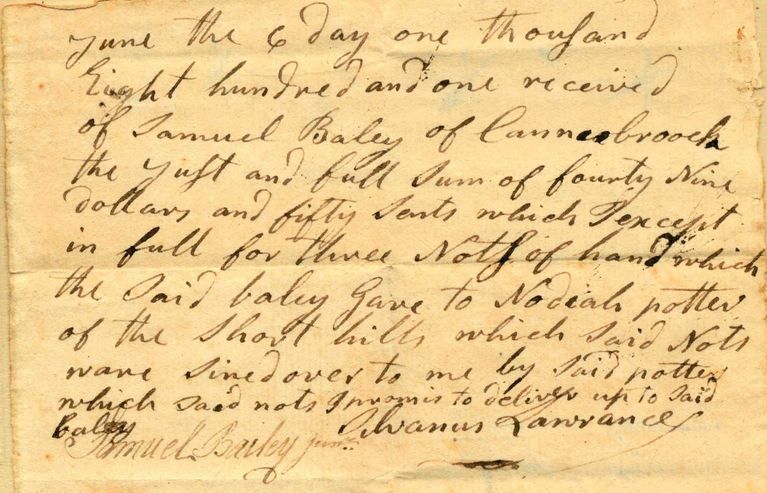 June the 6 day one thousand
Eight hundred and one received
of Samuel Baley of Canneobroock
the Just and full Sum of fourty Nine
dollars and fifty Sents which I except
in full for three Nots of hand which
the Said baley Gave to Nodiah potter
of the Short hills which Said Nots
ware Sined over to me by Said potter
which said nots I promis to deliver up to Said
baley Silvanus Lawrance
Samuel Bailey junr